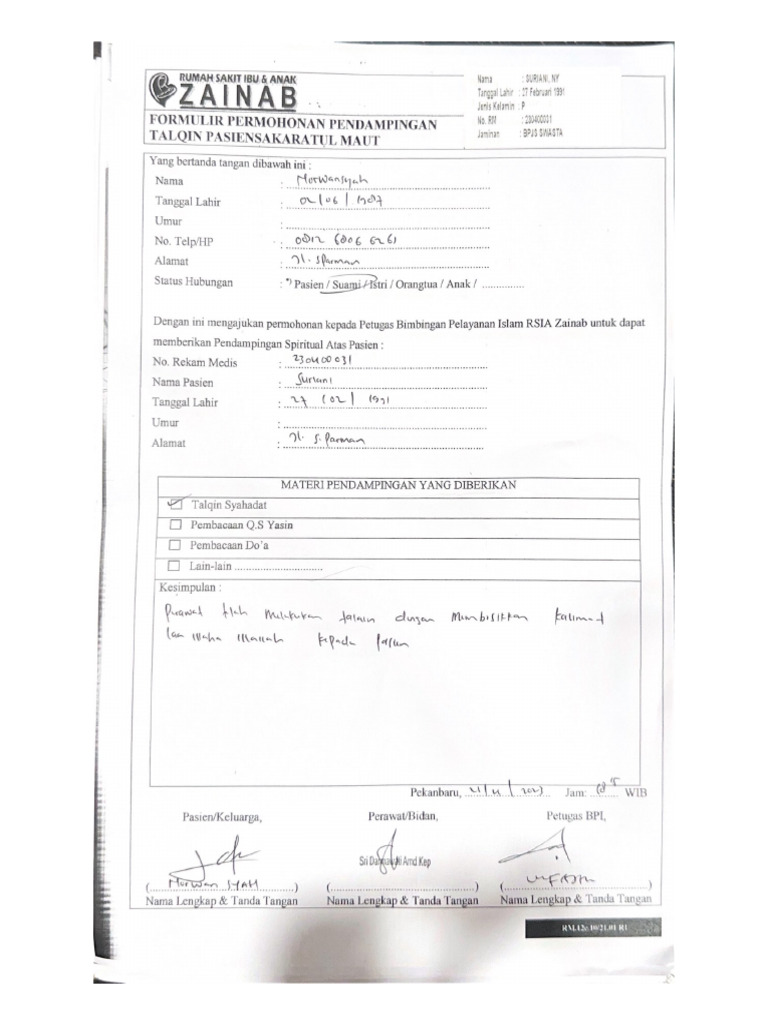 RUMAH SAKIT IBU & ANAK
ZAINAB
FORMULIR PERMOHONAN PENDAMPINGAN
TALQIN PASIENSAKARATUL MAUT
Nama : SURIANI, NY
Tanggal Lahir : 27 Februari 1991
Jenis Kelamin : P
No. RM : 230400031
Jaminan : BPJS SWASTA
Yang bertanda tangan dibawah ini :
Nama : Morwansyah
Tanggal Lahir : 02/06/1987
Umur :
No. Telp/HP : 0812 6806 6261
Alamat : Jl. S.Parman
Status Hubungan : *) Pasien / Suami / Istri / Orangtua / Anak / ..............
Dengan ini mengajukan permohonan kepada Petugas Bimbingan Pelayanan Islam RSIA Zainab untuk dapat
memberikan Pendampingan Spiritual Atas Pasien :
No. Rekam Medis : 230400031
Nama Pasien : Suriani
Tanggal Lahir : 27 / 02 / 1991
Umur :
Alamat : Jl. S. Parman
MATERI PENDAMPINGAN YANG DIBERIKAN
Talqin Syahadat
Pembacaan Q.S Yasin
Pembacaan Do'a
Lain-lain ..............................
Kesimpulan :
Perawat telah melakukan talqin dengan membisikkan kalimat
kepada pasien
Pekanbaru, Jam: WIB
Pasien/Keluarga, Perawat/Bidan, Petugas BPI,
Amd Kep
(Morwan SYAH) (..............................) (..............................)
Nama Lengkap & Tanda Tangan Nama Lengkap & Tanda Tangan Nama Lengkap & Tanda Tangan